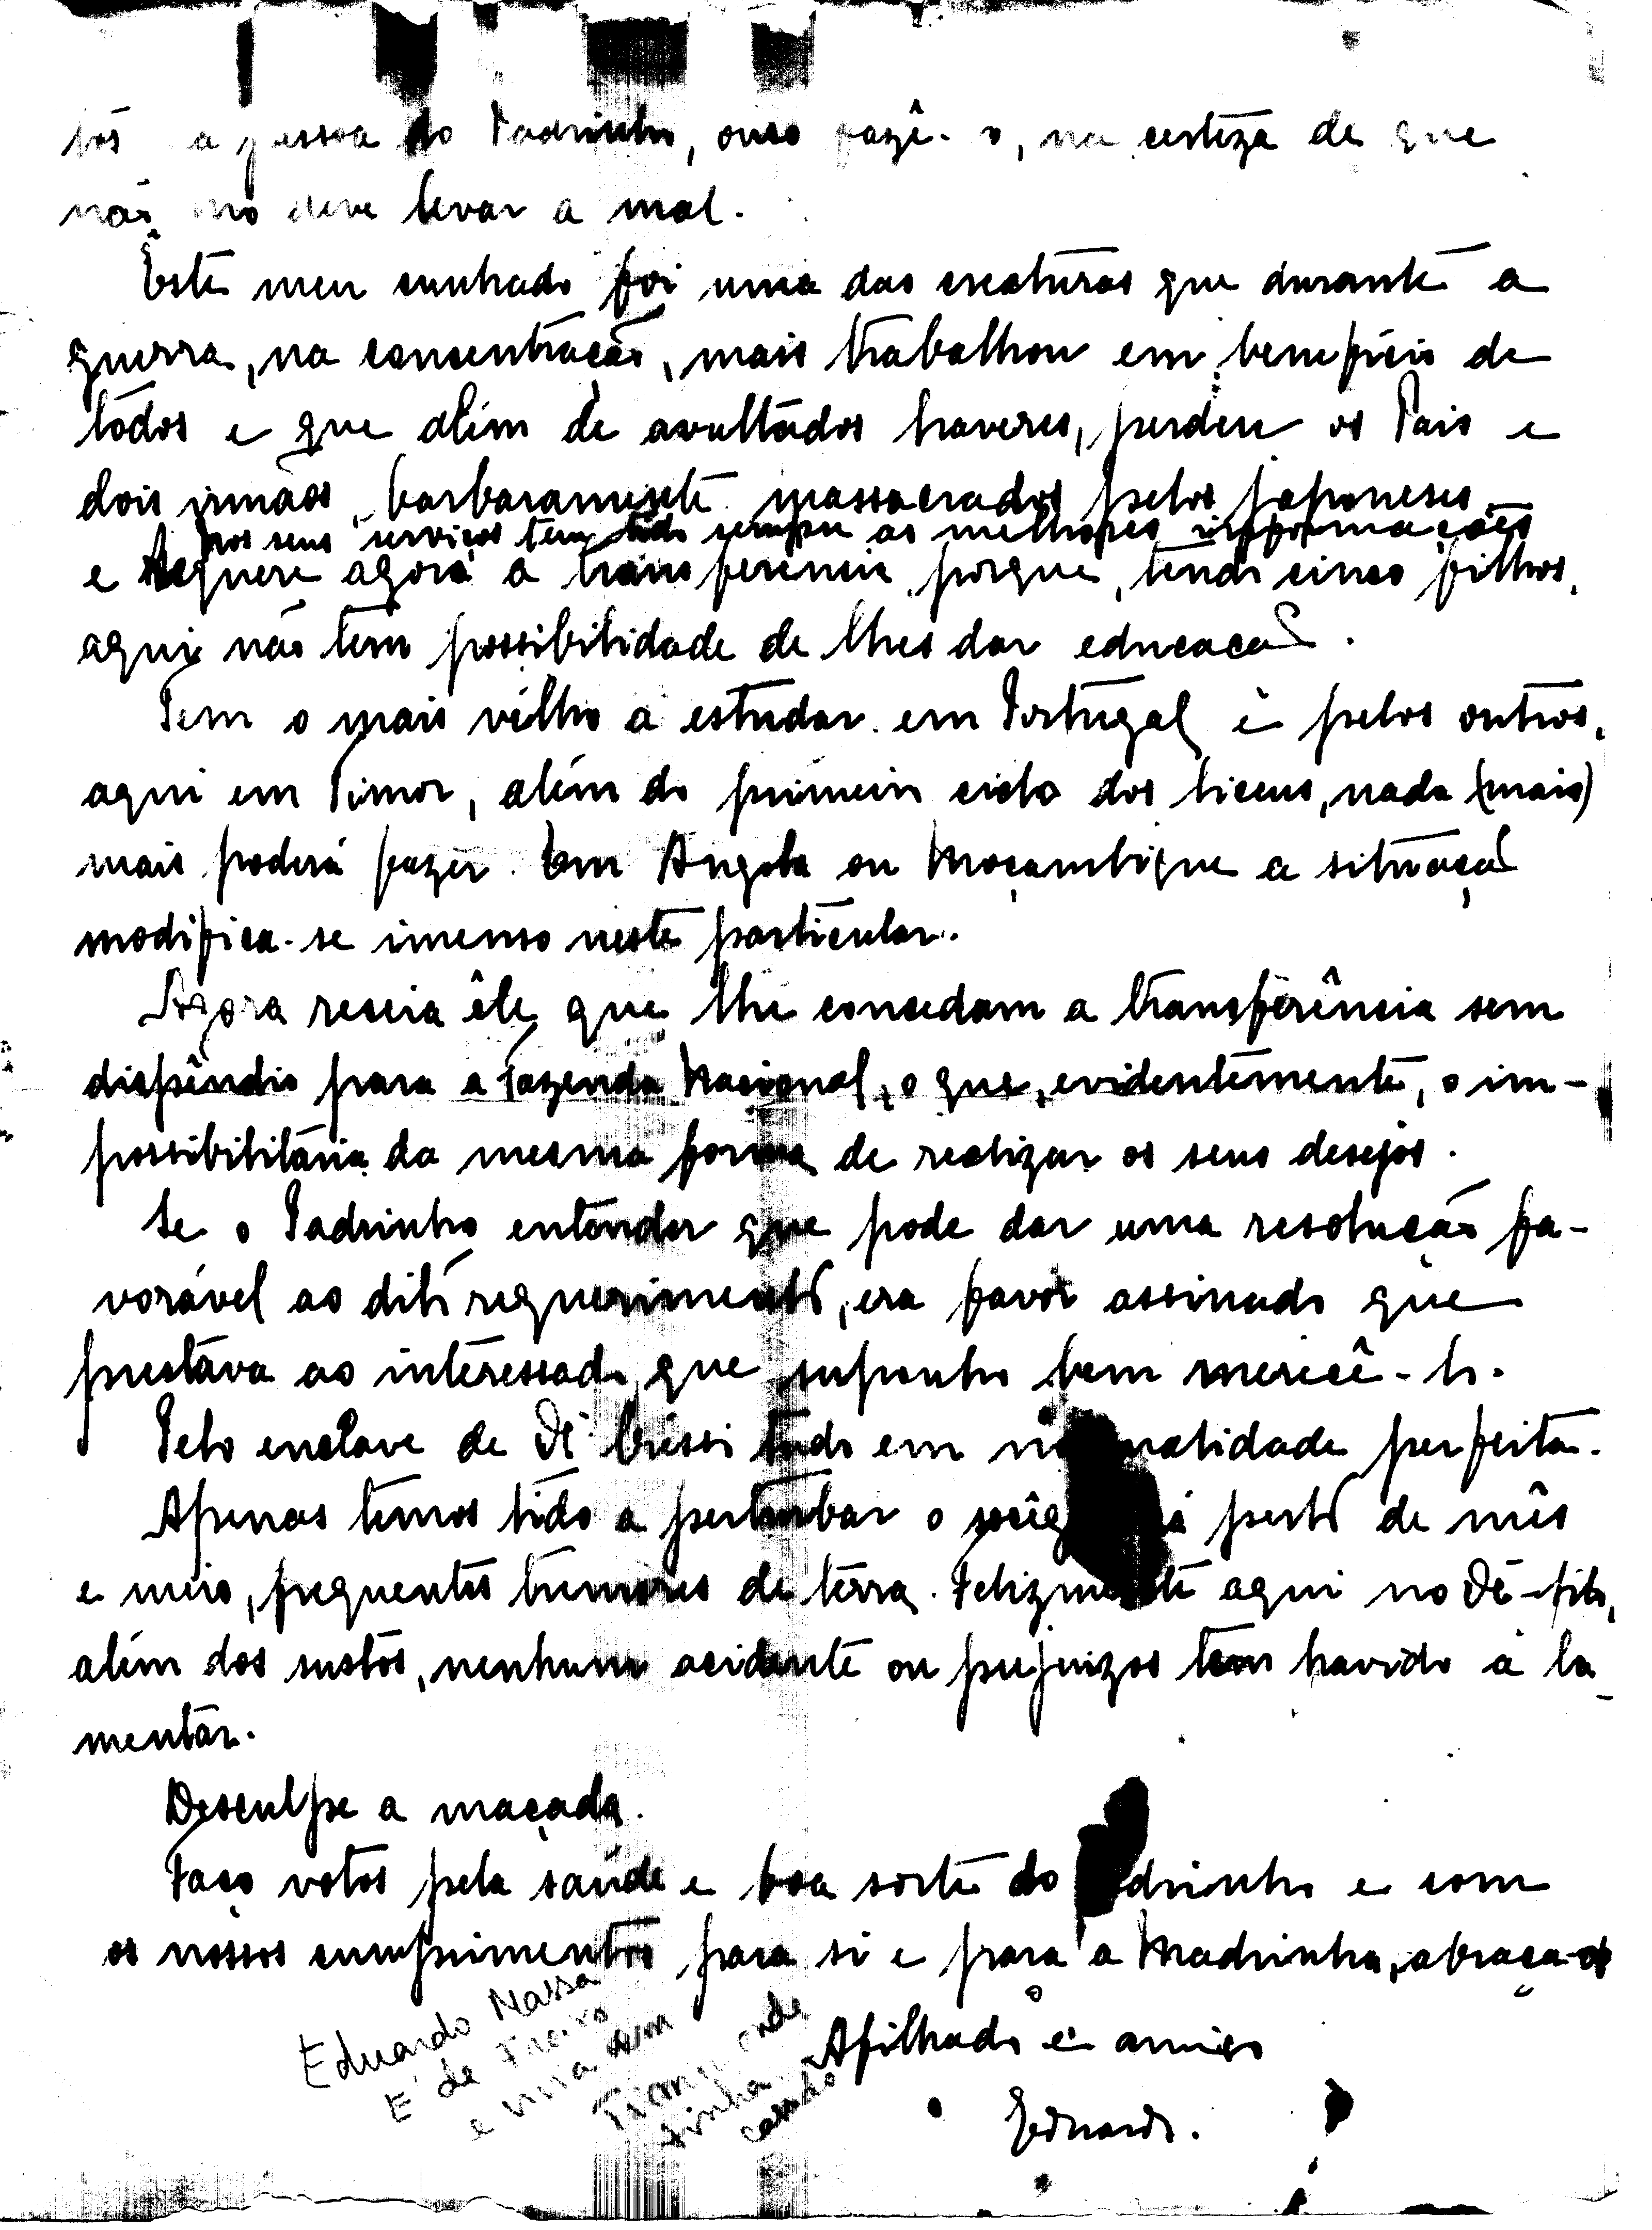 a pessoa do Padrinho, ouso fazê-o, na certeza de que
não mo deve levar a mal.
Êste meu cunhado foi uma das creaturas que durante a
guerra, na concentração, mais trabalhou em beneficio de
todos e que além de avultados haveres, perdeu os Pais e
dois irmãos, barbaramente massacrados pelos japoneses.
nos seus serviços tem tido sempre as melhores informações
e Requere agora a transferencia, porque, tendo cinco filhos,
aqui não tem possibilidade de lhes dar educação.
Tem o mais velho a estudar em Portugal e pelos outros,
aqui em Timor, além do primeiro ciclo dos liceus, nada (mais)
mais poderá fazer. Em Angola ou Moçambique a situação
modifica-se imenso neste particular.
Agora receia êle, que lhe concedam a transferência sem
dispêndio para a Fazenda Nacional, o que, evidentemente, o im-
possibilitaria da mesma forma de realizar os seus desejos.
Se o Padrinho entender que pode dar uma resolução fa-
vorável ao dito requerimento, era favor assinado que
prestava ao interessado, que suponho bem merecê-lo.
Pelo enclave de Oé-Cussi tudo em normalidade perfeita.
Apenas temos tido a perturbar o há perto de mês
e meio, frequentes tremores de terra. Felizmente aqui no
além dos sustos, nenhum acidente ou prejuizos tem havido a la
mentar.
Desculpe a maçada.
Faço votos pela saúde e boa sorte do Padrinho e com
os nossos cumprimentos para si e para a Madrinha, abraça-o
o
Afilhado e amigo
Eduardo.
Eduardo Massa
E' de
e vivia em
Timor onde
tinha
casado